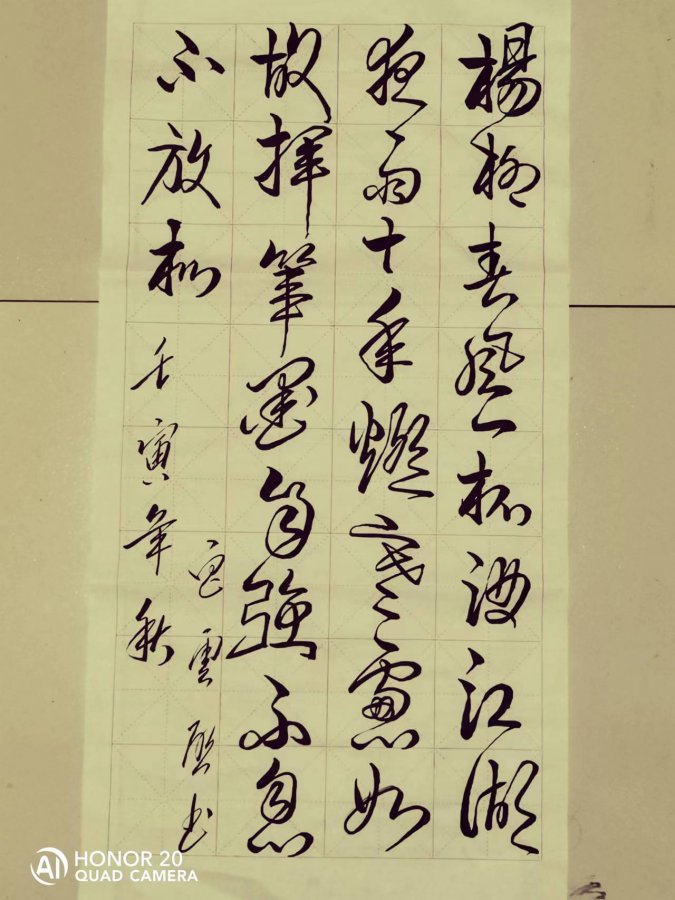 楊柳春風一杯酒江湖
夜雨十年燈慮如
故揮筆墨自強不息
不放松
壬寅年秋
雲书
HONOR 20
QUAD CAMERA
AI